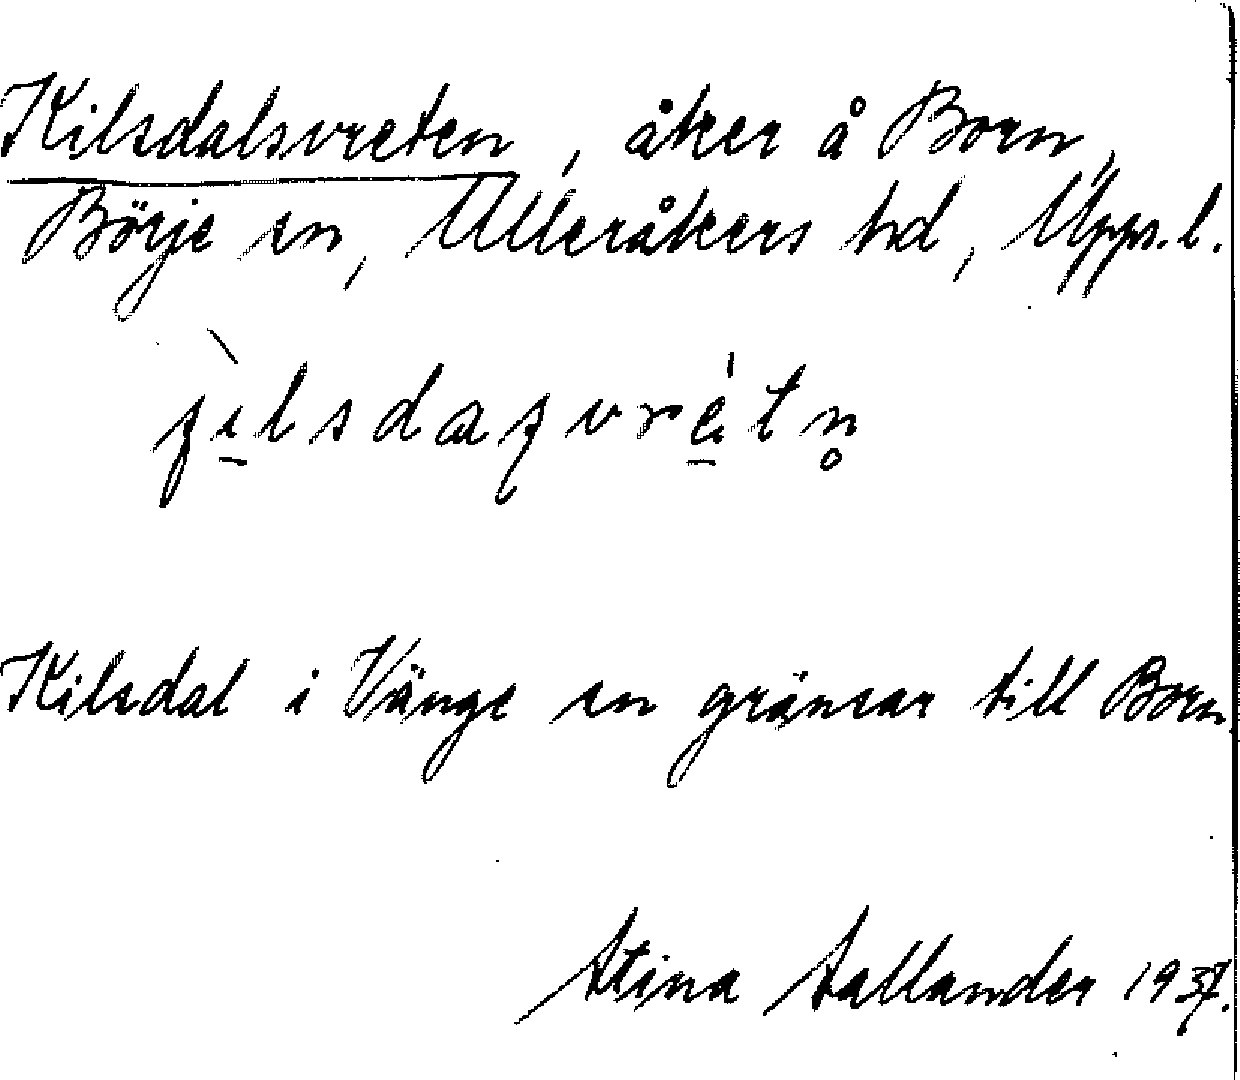 Kilsdalsvreten, åker å Born,
Börje sn, Ulleråkers hd, Uppl.
Kilsdal i Vänge sn gränsar till Born.
Stina Sallander 1937.